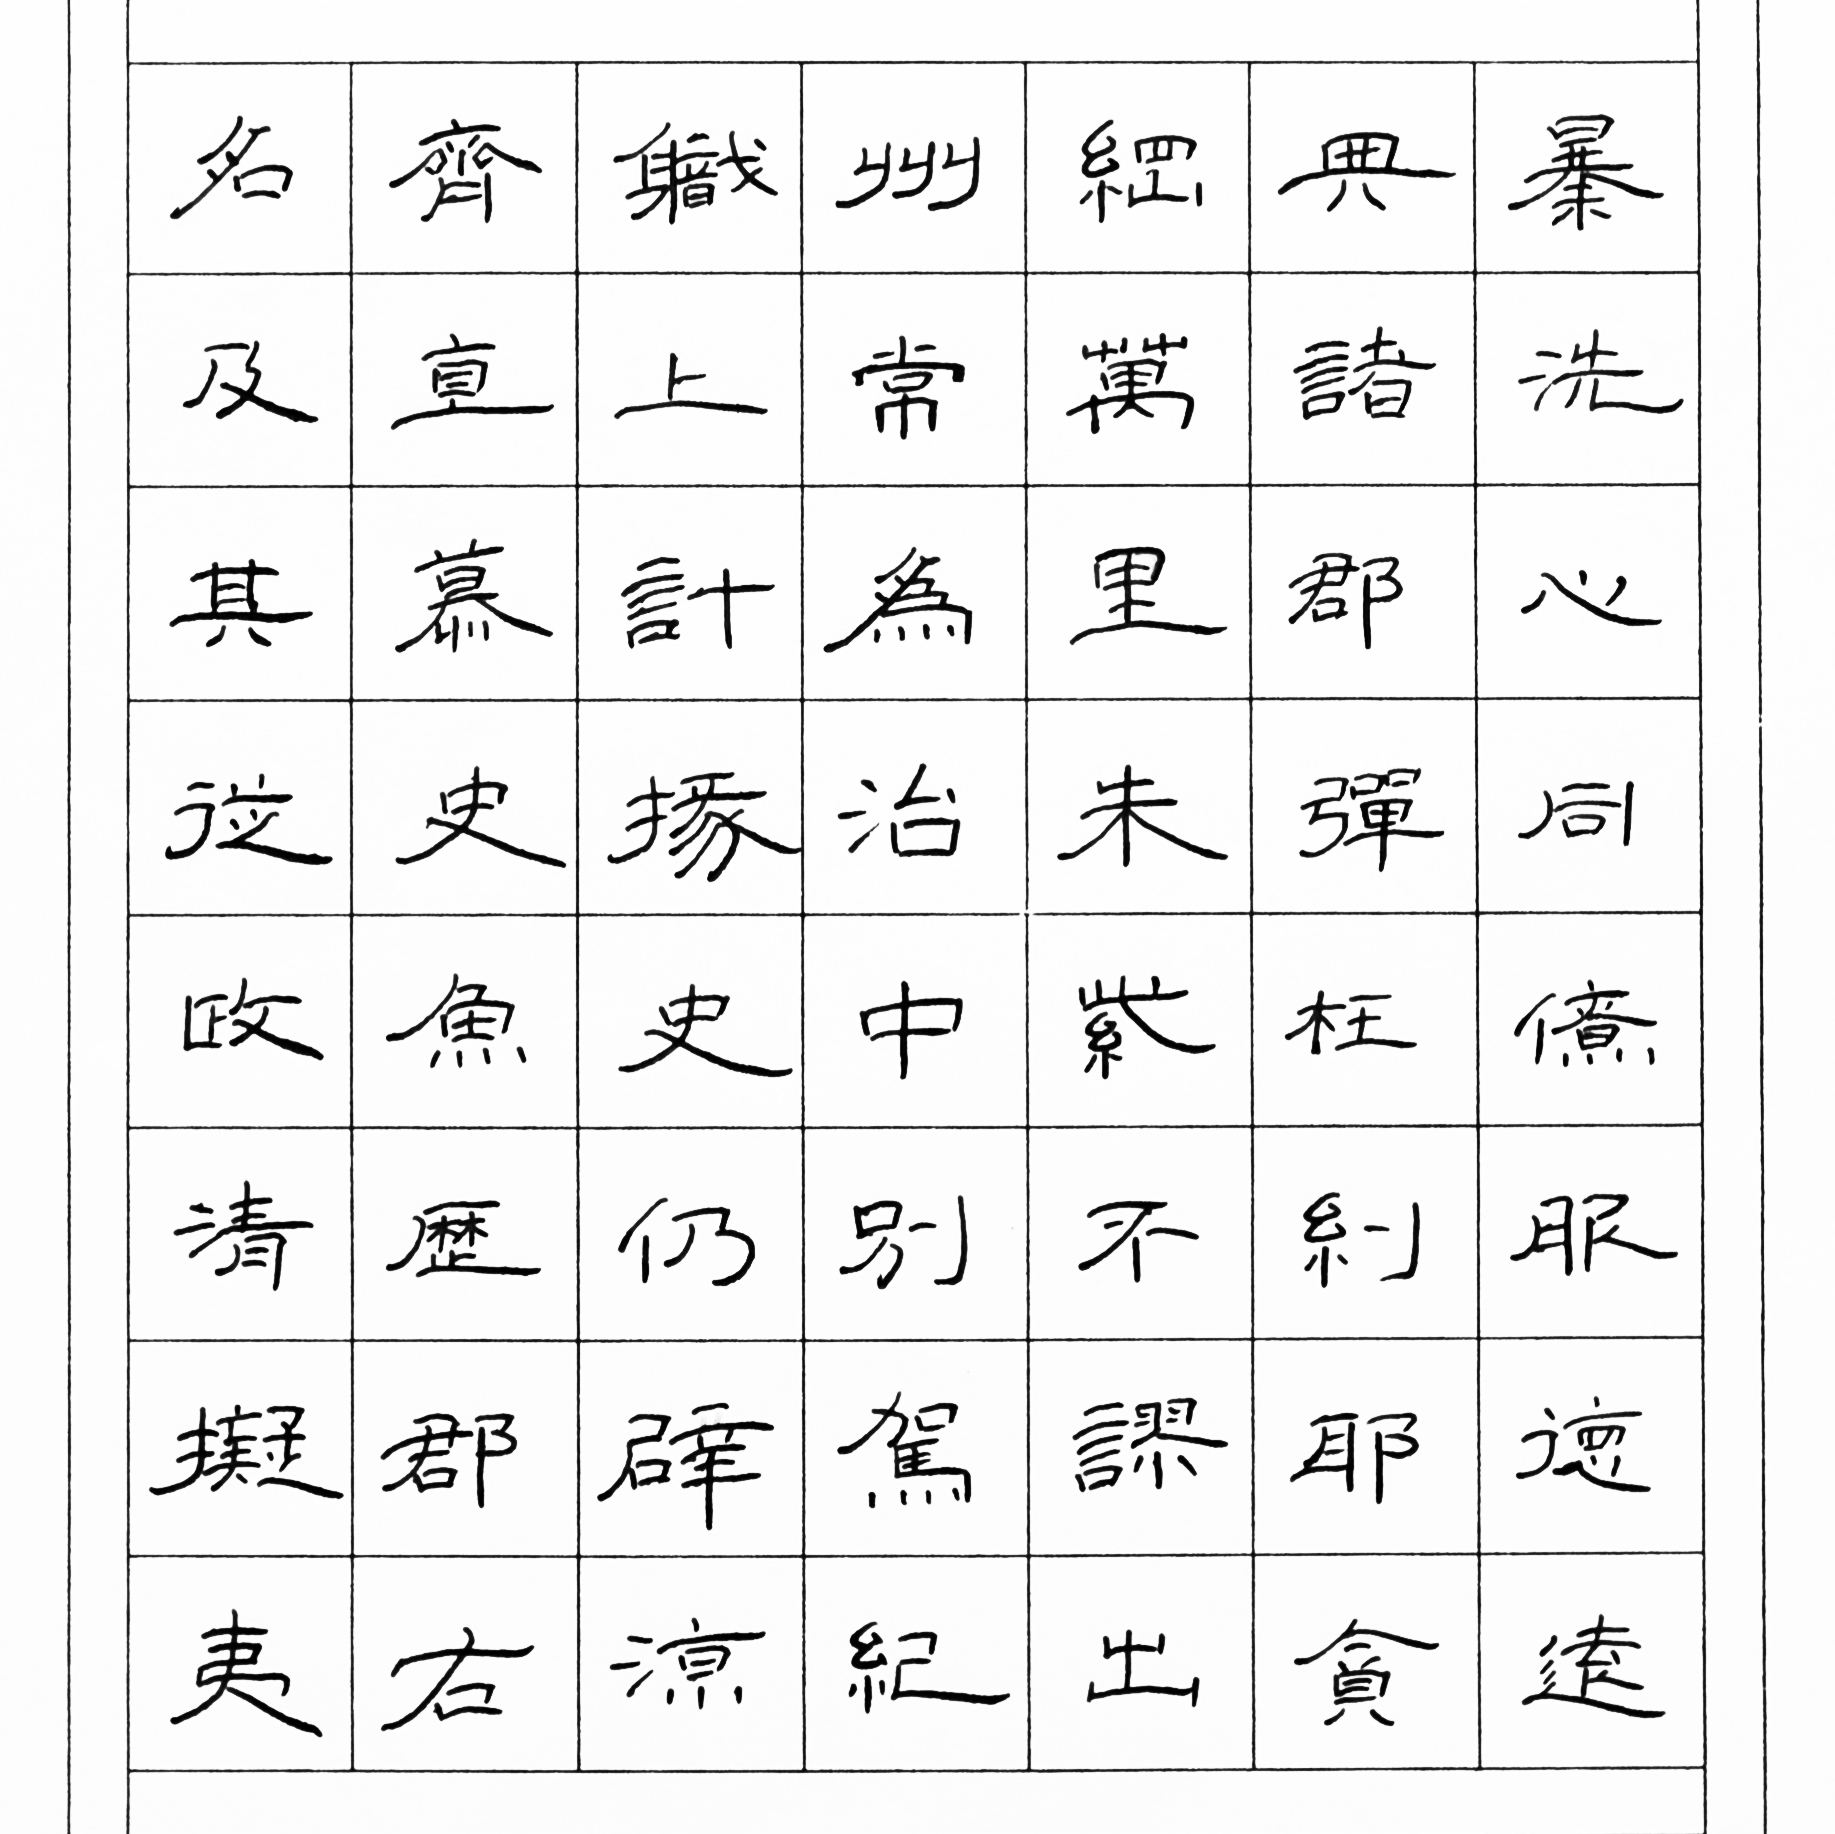 名及其從政清擬夷
齊直慕史魚歷郡右
職上計掾史仍辟涼
州常為治中別駕紀
綱萬里朱紫不謬出
典諸郡彈枉糾耶貪
暴洗心同僚服德遠